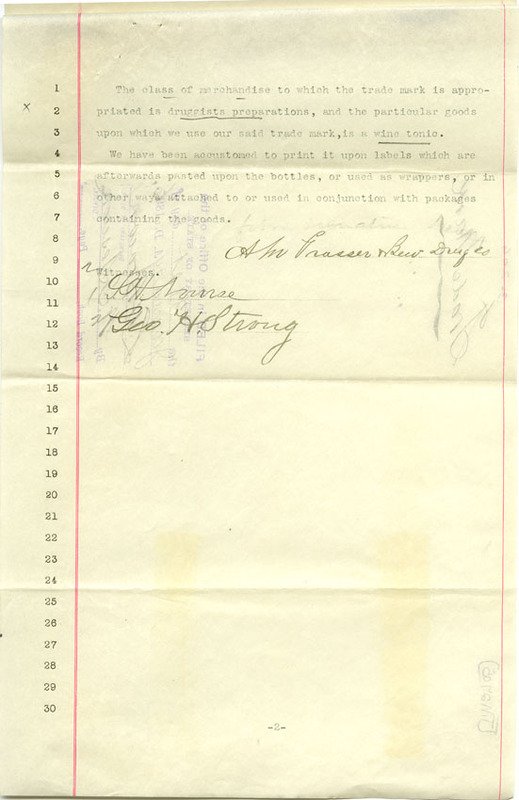 1 The class of merchandise to which the trade mark is appro-
x 2 priated is druggists preparations, and the particular goods
3 upon which we use our said trade mark, is a wine tonic.
4 We have been accustomed to print it upon labels which are
5 afterwards pasted upon the bottles, or used as wrappers, or in
6 other ways attached to or used in conjunction with packages
7 containing the goods.
8
9 Witnesses.
10
11
12 Geo. H. Strong
13
14
15
16
17
18
19
20
21
22
23
24
25
26
27
28
29
30
-2-